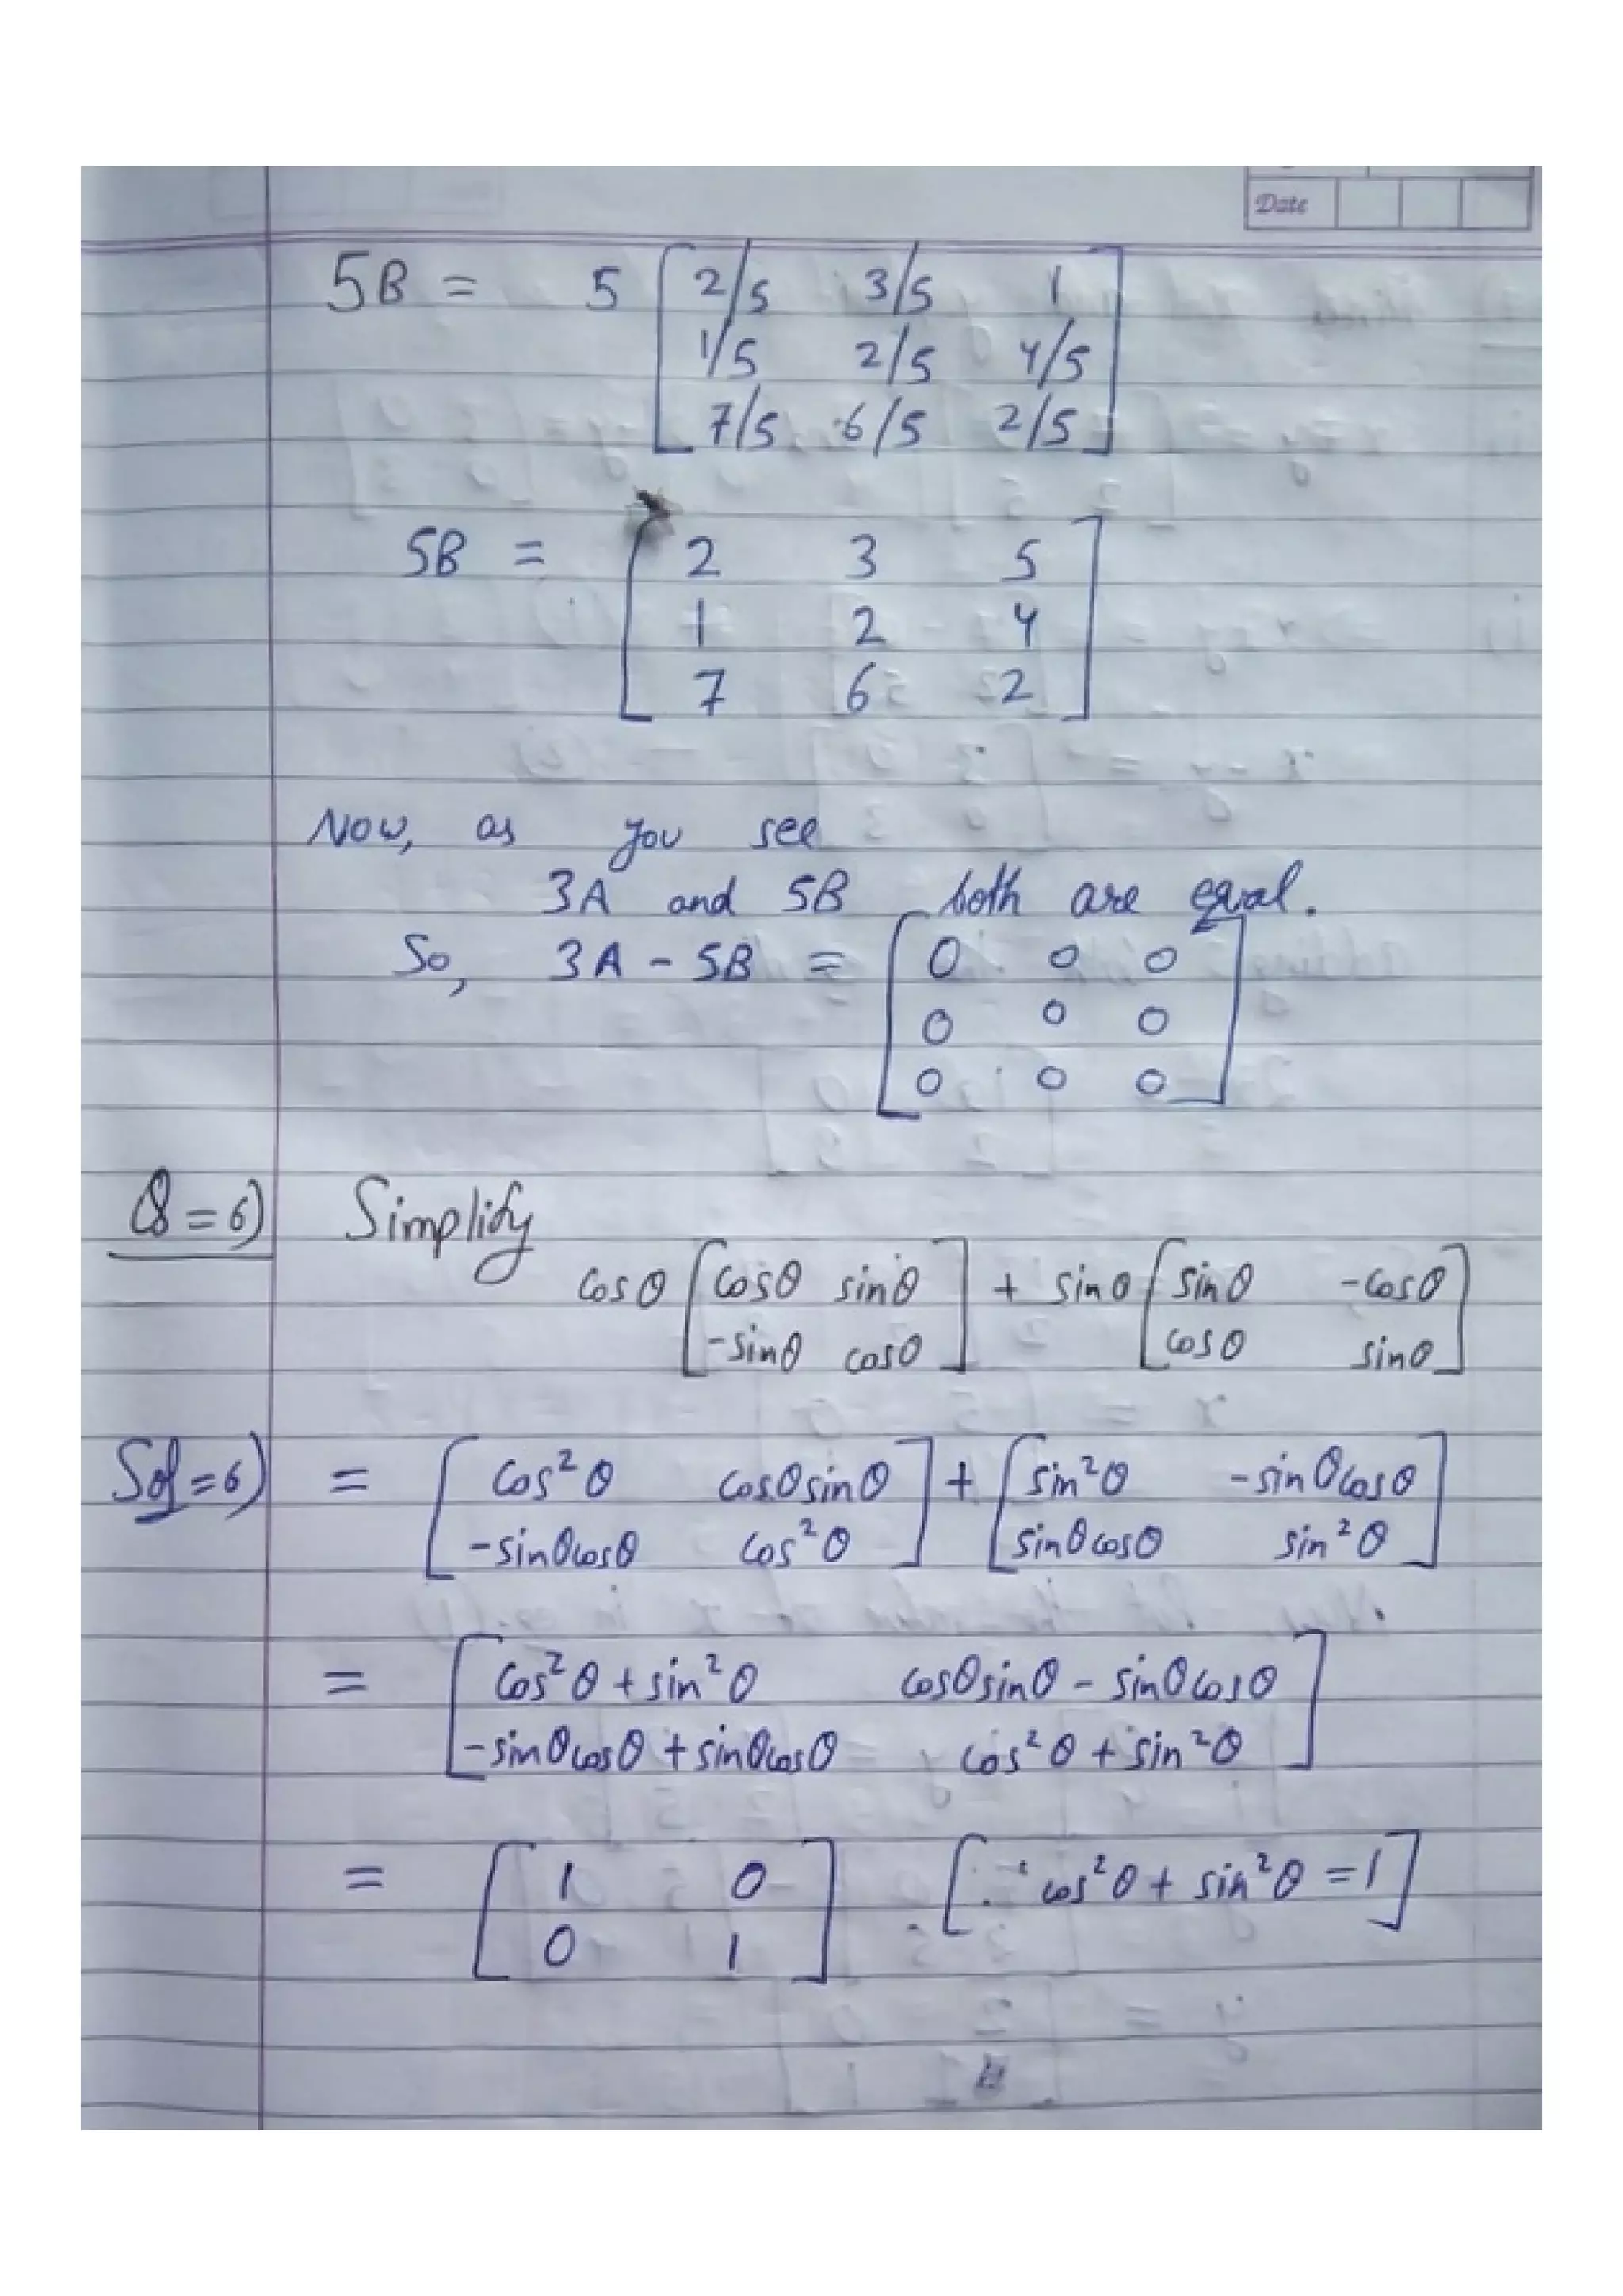 Date
5B = 5 [ 2/5 3/5 1
1/5 2/5 4/5
7/5 6/5 2/5 ]
5B = [ 2 3 5
1 2 4
7 6 2 ]
Now, as you see
3A and 5B both are equal.
So, 3A - 5B = [ 0 0 0
0 0 0
0 0 0 ]
Q=6) Simplify
cosθ [ cosθ sinθ ] + sinθ [ sinθ -cosθ ]
-sinθ cosθ cosθ sinθ
Sol=6) = [ cos²θ cosθsinθ ] + [ sin²θ -sinθcosθ ]
-sinθcosθ cos²θ sinθcosθ sin²θ
= [ cos²θ + sin²θ cosθsinθ - sinθcosθ ]
-sinθcosθ + sinθcosθ cos²θ + sin²θ
= [ 1 0 ] [ ∵ cos²θ + sin²θ = 1 ]
0 1